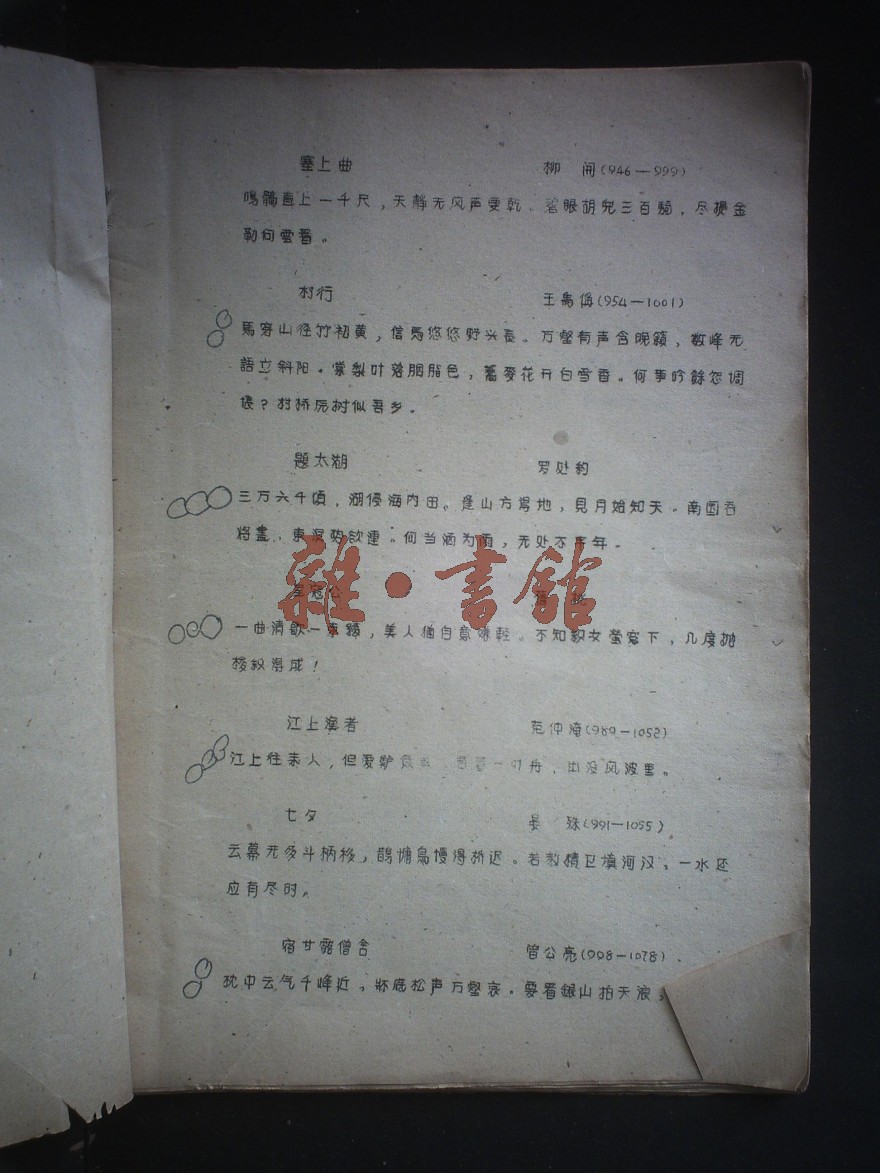 塞上曲 柳 开(946—999)
鳴髇直上一千尺，天静无风声更乾、碧眼胡兒三百騎，尽提金
勒向雲看。
村行 王禹偁(954—1001)
馬穿山径竹初黄，信馬悠悠野兴長。万壑有声含晚籟，数峰无
語立斜阳。棠梨叶落胭脂色，蕎麥花开白雪香。何事吟餘忽调
悵？村桥原树似吾乡。
題太湖 罗处約
三万六千頃，湖侵海内田。逢山方得地，見月始知天。南国吞
将盡，東溟势欲連。何当洒为雨，无处不丰年。
呈寇公
一曲清歌一束綾，美人犹自意嫌輕。不知织女萤窓下，几度抛
梭织得成！
江上漁者 范仲淹(989—1052)
江上往来人，但爱鲈 一叶舟，出没风波里。
七夕 晏 殊(991—1055)
云幕无多斗柄移，鵲慵烏慢得桥迟。若教精卫填河汉，一水还
应有尽时。
宿甘露僧舍 曾公亮(998—1078)
枕中云气千峰近，牀底松声万壑哀。要看銀山拍天浪，
雜·書館